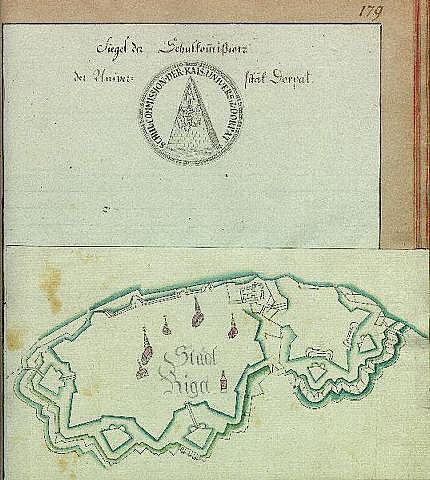 179
Siegel der Schulkom̅ißion
der Univer- sität Dorpat.
SCHULCOMMISSION·DER·KAIS:UNIVERS:Z:DORPAT·
Stadt
Riga